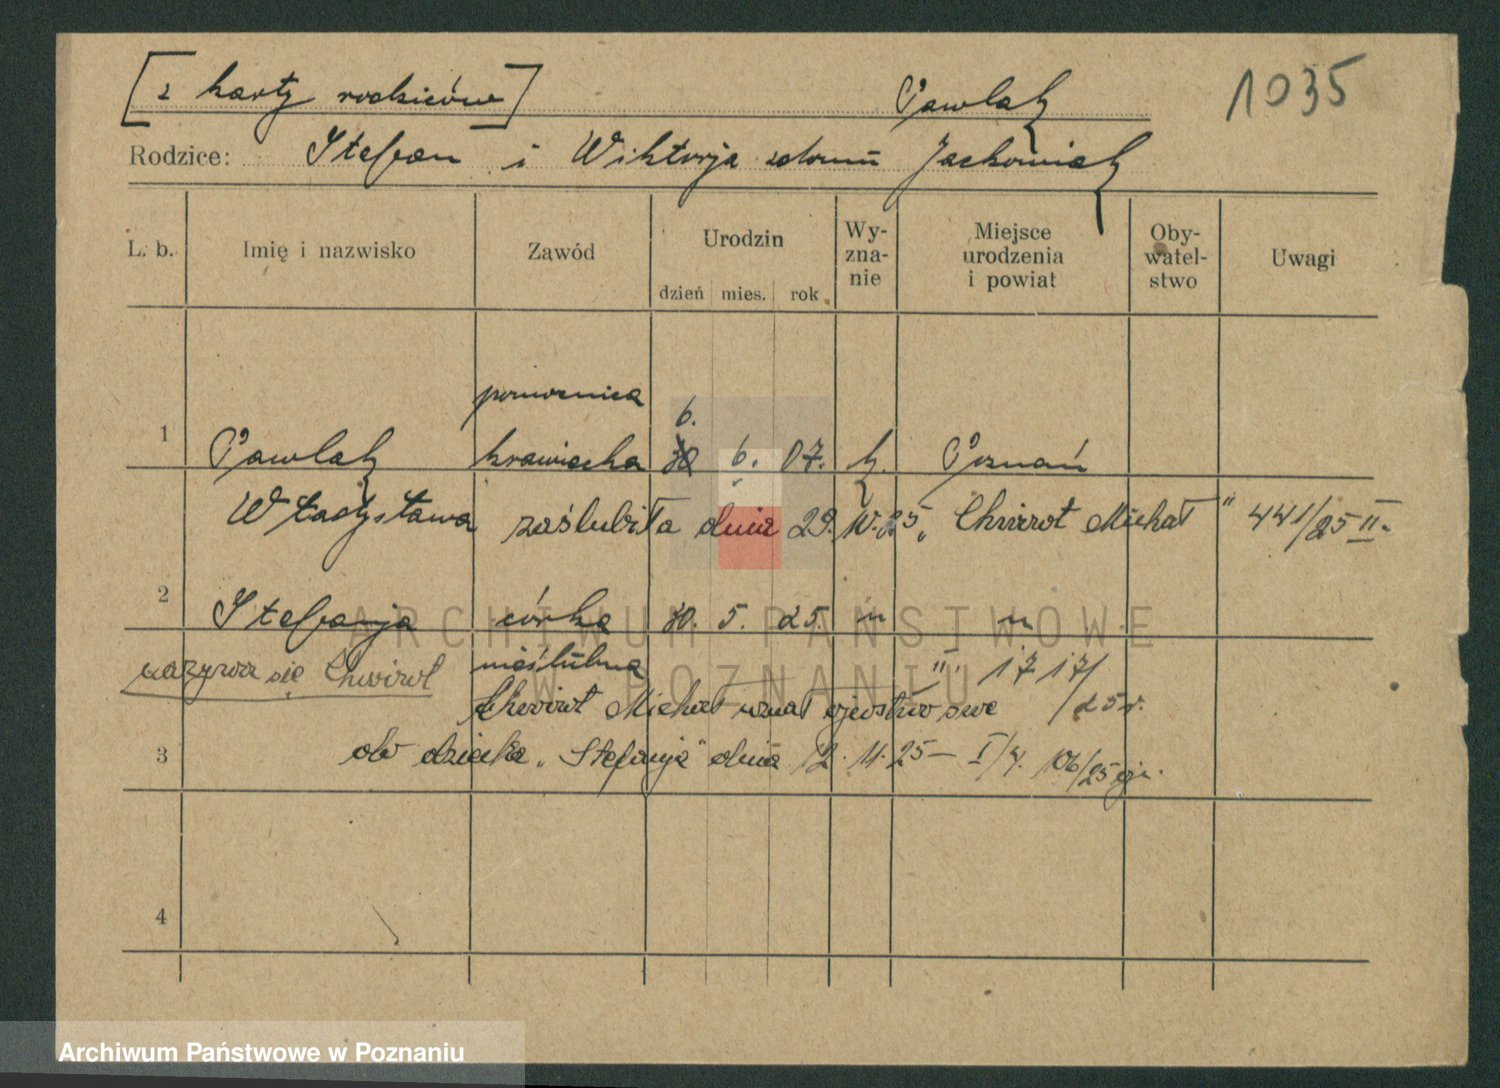 [z karty rodziców] Pawlak 1035
Rodzice: Stefan i Wiktorja z domu Jackowiak
L. b. Imię i nazwisko Zawód Urodzin Wy-zna-nie Miejsce urodzenia i powiat Oby-watel-stwo Uwagi
dzień mies. rok
pomocnica
6.
1 Pawlak krawiecka 30 6. 07. k. Poznań
Władysława zaślubiła dnia 29. IV. 25 „Chwirot Michał" 441/25 II.
2 Stefanja córka 30. 5. 25. " "
nazywa się Chwirot nieślubna "" 1717/
Chwirot Michał uznał ojcostwo swe /25 r.
3 do dziecka „Stefanja" dnia 12. 11. 25 — I/4. 106/25
4
ARCHIWUM PAŃSTWOWE
W POZNANIU
Archiwum Państwowe w Poznaniu